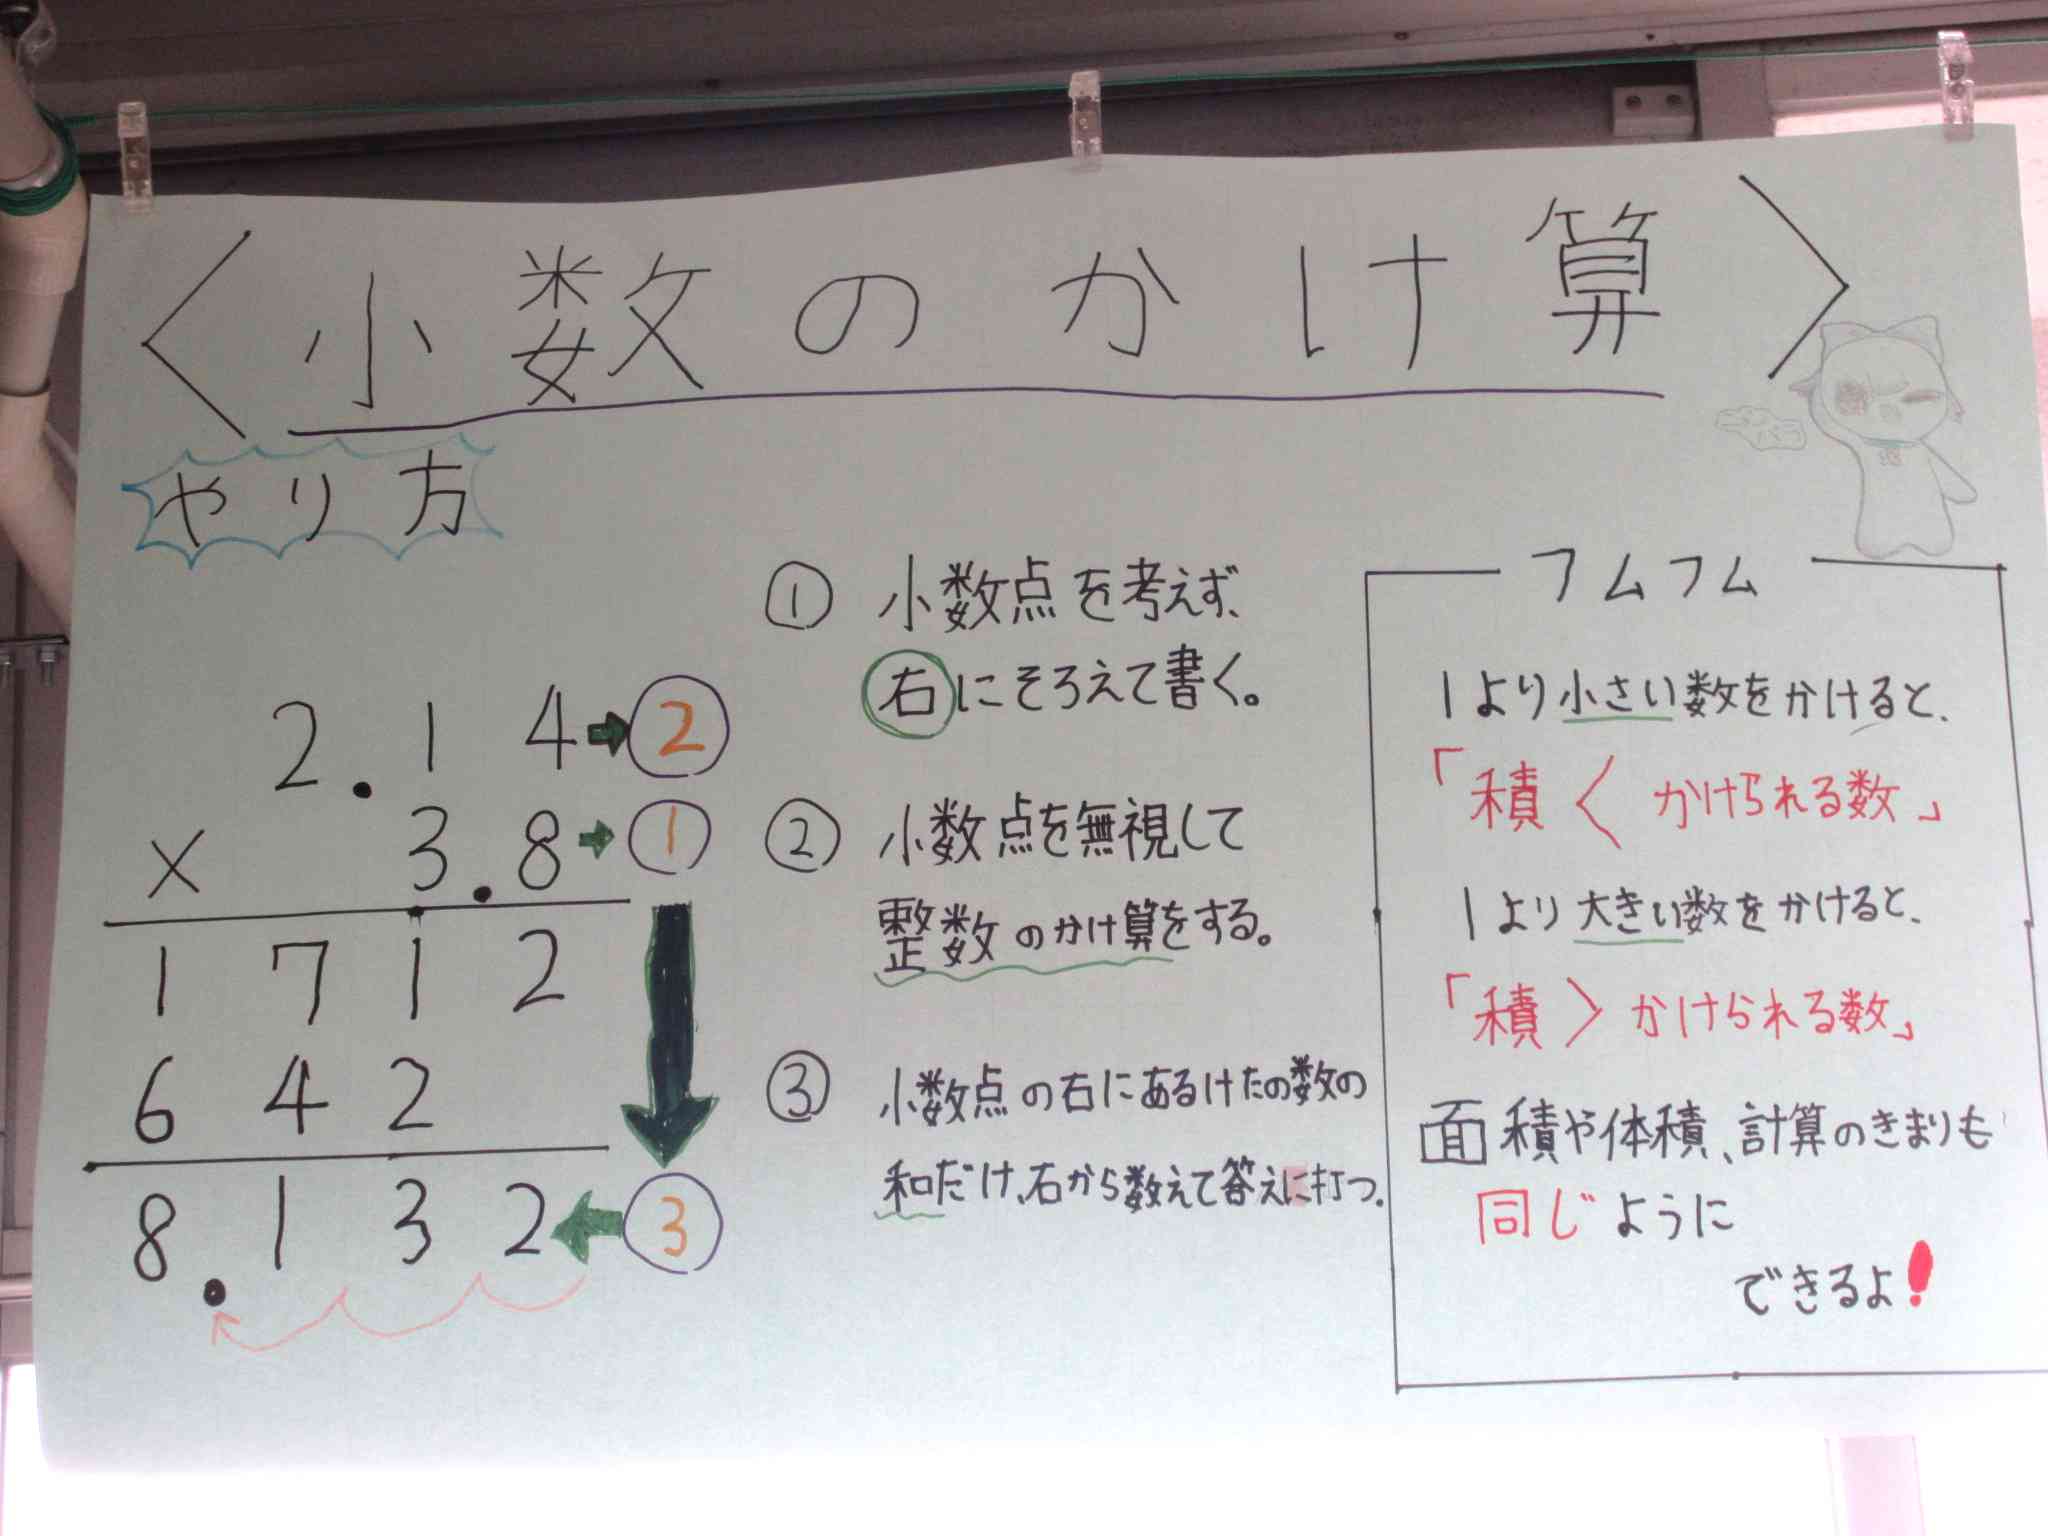 〈小数のかけ算〉
やり方
2.14→②
×3.8→①
1712
642
8.132←③
① 小数点を考えず、
右にそろえて書く。
② 小数点を無視して
整数のかけ算をする。
③ 小数点の右にあるけたの数の
和だけ、右から数えて答えに打つ。
フムフム
1より小さい数をかけると、
「積〈かけられる数」
1より大きい数をかけると、
「積〉かけられる数」
面積や体積、計算のきまりも
同じように
できるよ!